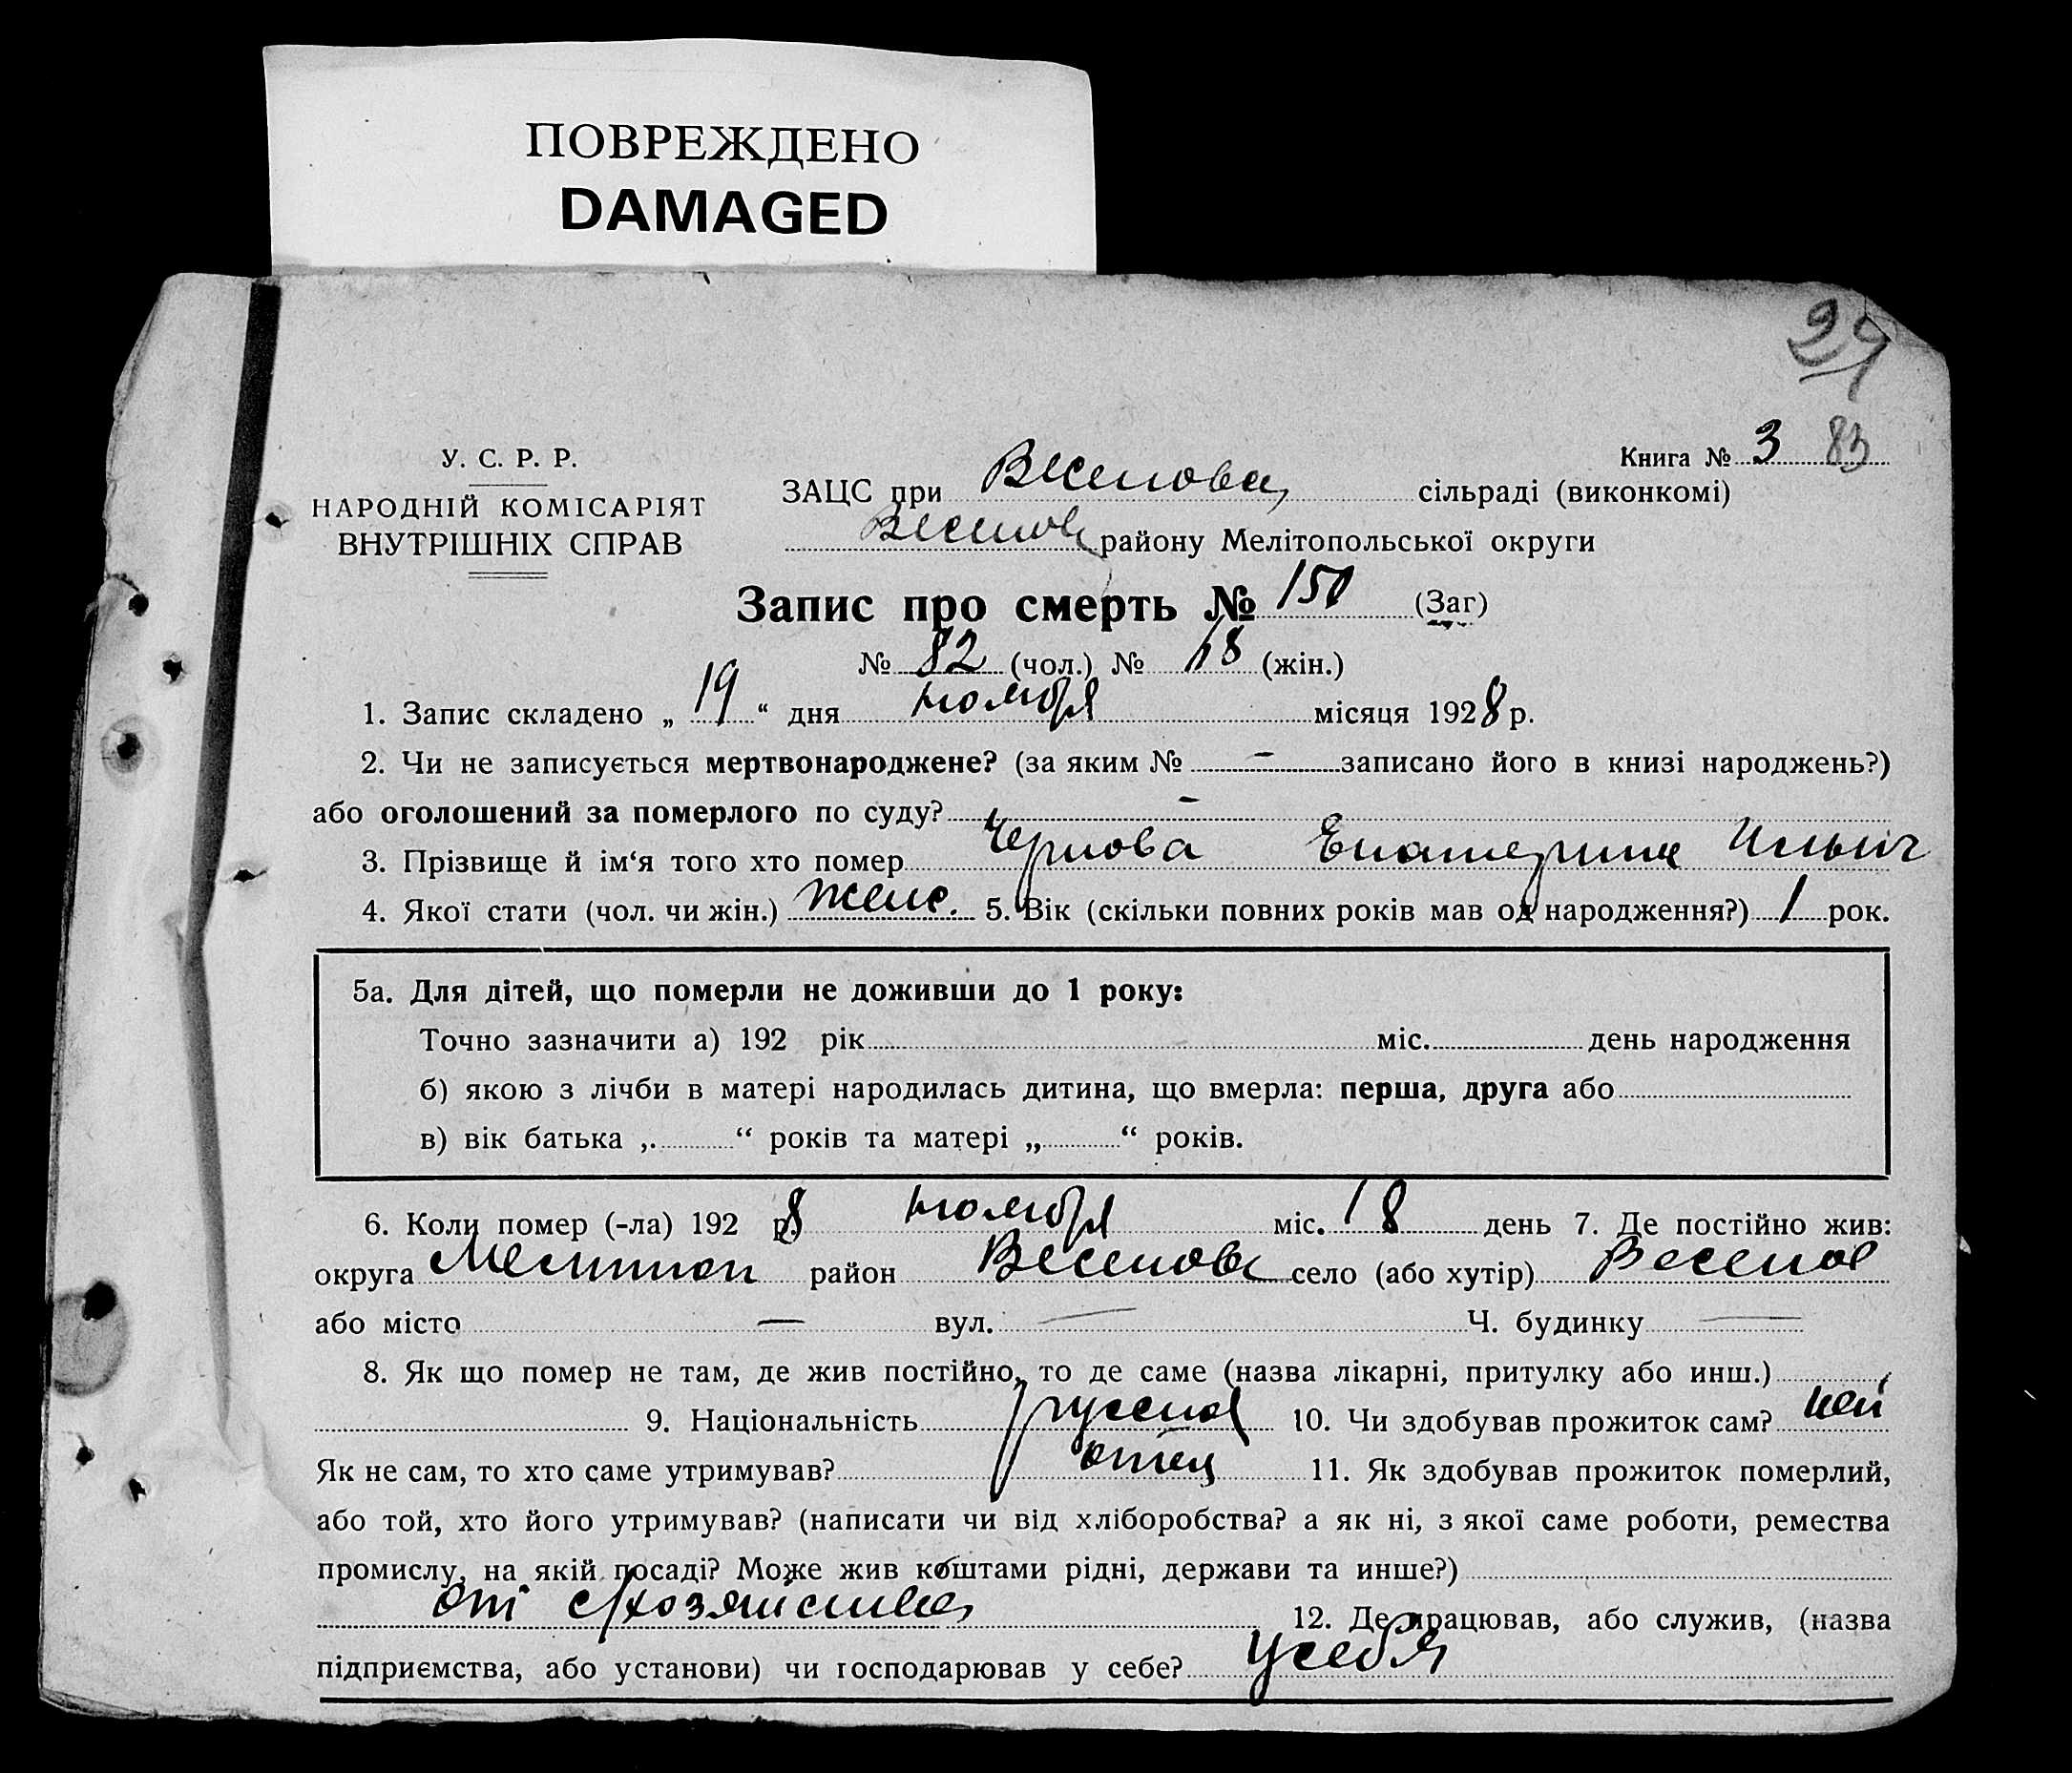 ПОВРЕЖДЕНО
DAMAGED
Книга № 3 83
У. С. Р. Р.
НАРОДНІЙ КОМІСАРІЯТ
ВНУТРІШНІХ СПРАВ
ЗАЦС при сільраді (виконкомі)
району Мелітопольської округи
Запис про смерть № (Заг)
№ 82 (чол.) № (жін.)
1. Запис складено „ 19 “ дня ноября місяця 1928 р.
2. Чи не записується мертвонароджене? (за яким № – записано його в книзі народжень?)
або оголошений за померлого по суду? –
3. Прізвище й ім‘я того хто помер Чернова Екатерина Ильич
4. Якої стати (чол. чи жін.) женс. 5. Вік (скільки повних років мав од народження?) 1 рок.
5а. Для дітей, що померли не доживши до 1 року:
Точно зазначити а) 192 рік міс. день народження
б) якою з лічби в матері народилась дитина, що вмерла: перша, друга або
в) вік батька „ “ років та матері „ “ років.
6. Коли помер (-ла) 1928 р. ноября міс. 18 день 7. Де постійно жив:
округа Мелитоп район Веселовс село (або хутір) Веселое
або місто — вул. — Ч. будинку —
8. Як що помер не там, де жив постійно, то де саме (назва лікарні, притулку або инш.)
9. Національність русская 10. Чи здобував прожиток сам?
Як не сам, то хто саме утримував? отец 11. Як здобував прожиток померлий,
або той, хто його утримував? (написати чи від хліборобства? а як ні, з якої саме роботи, ремества
промислу, на якій посаді? Може жив коштами рідні, держави та инше?)
от с/хозяйства 12. Де працював, або служив, (назва
підприємства, або установи) чи господарював у себе? у себя